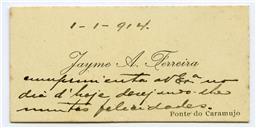 1-1-914.
Jayme A. Ferreira
cumprimenta a V. Exª no
dia d'hoje desejando-lhe
muitas felicidades.
Ponte do Caramujo